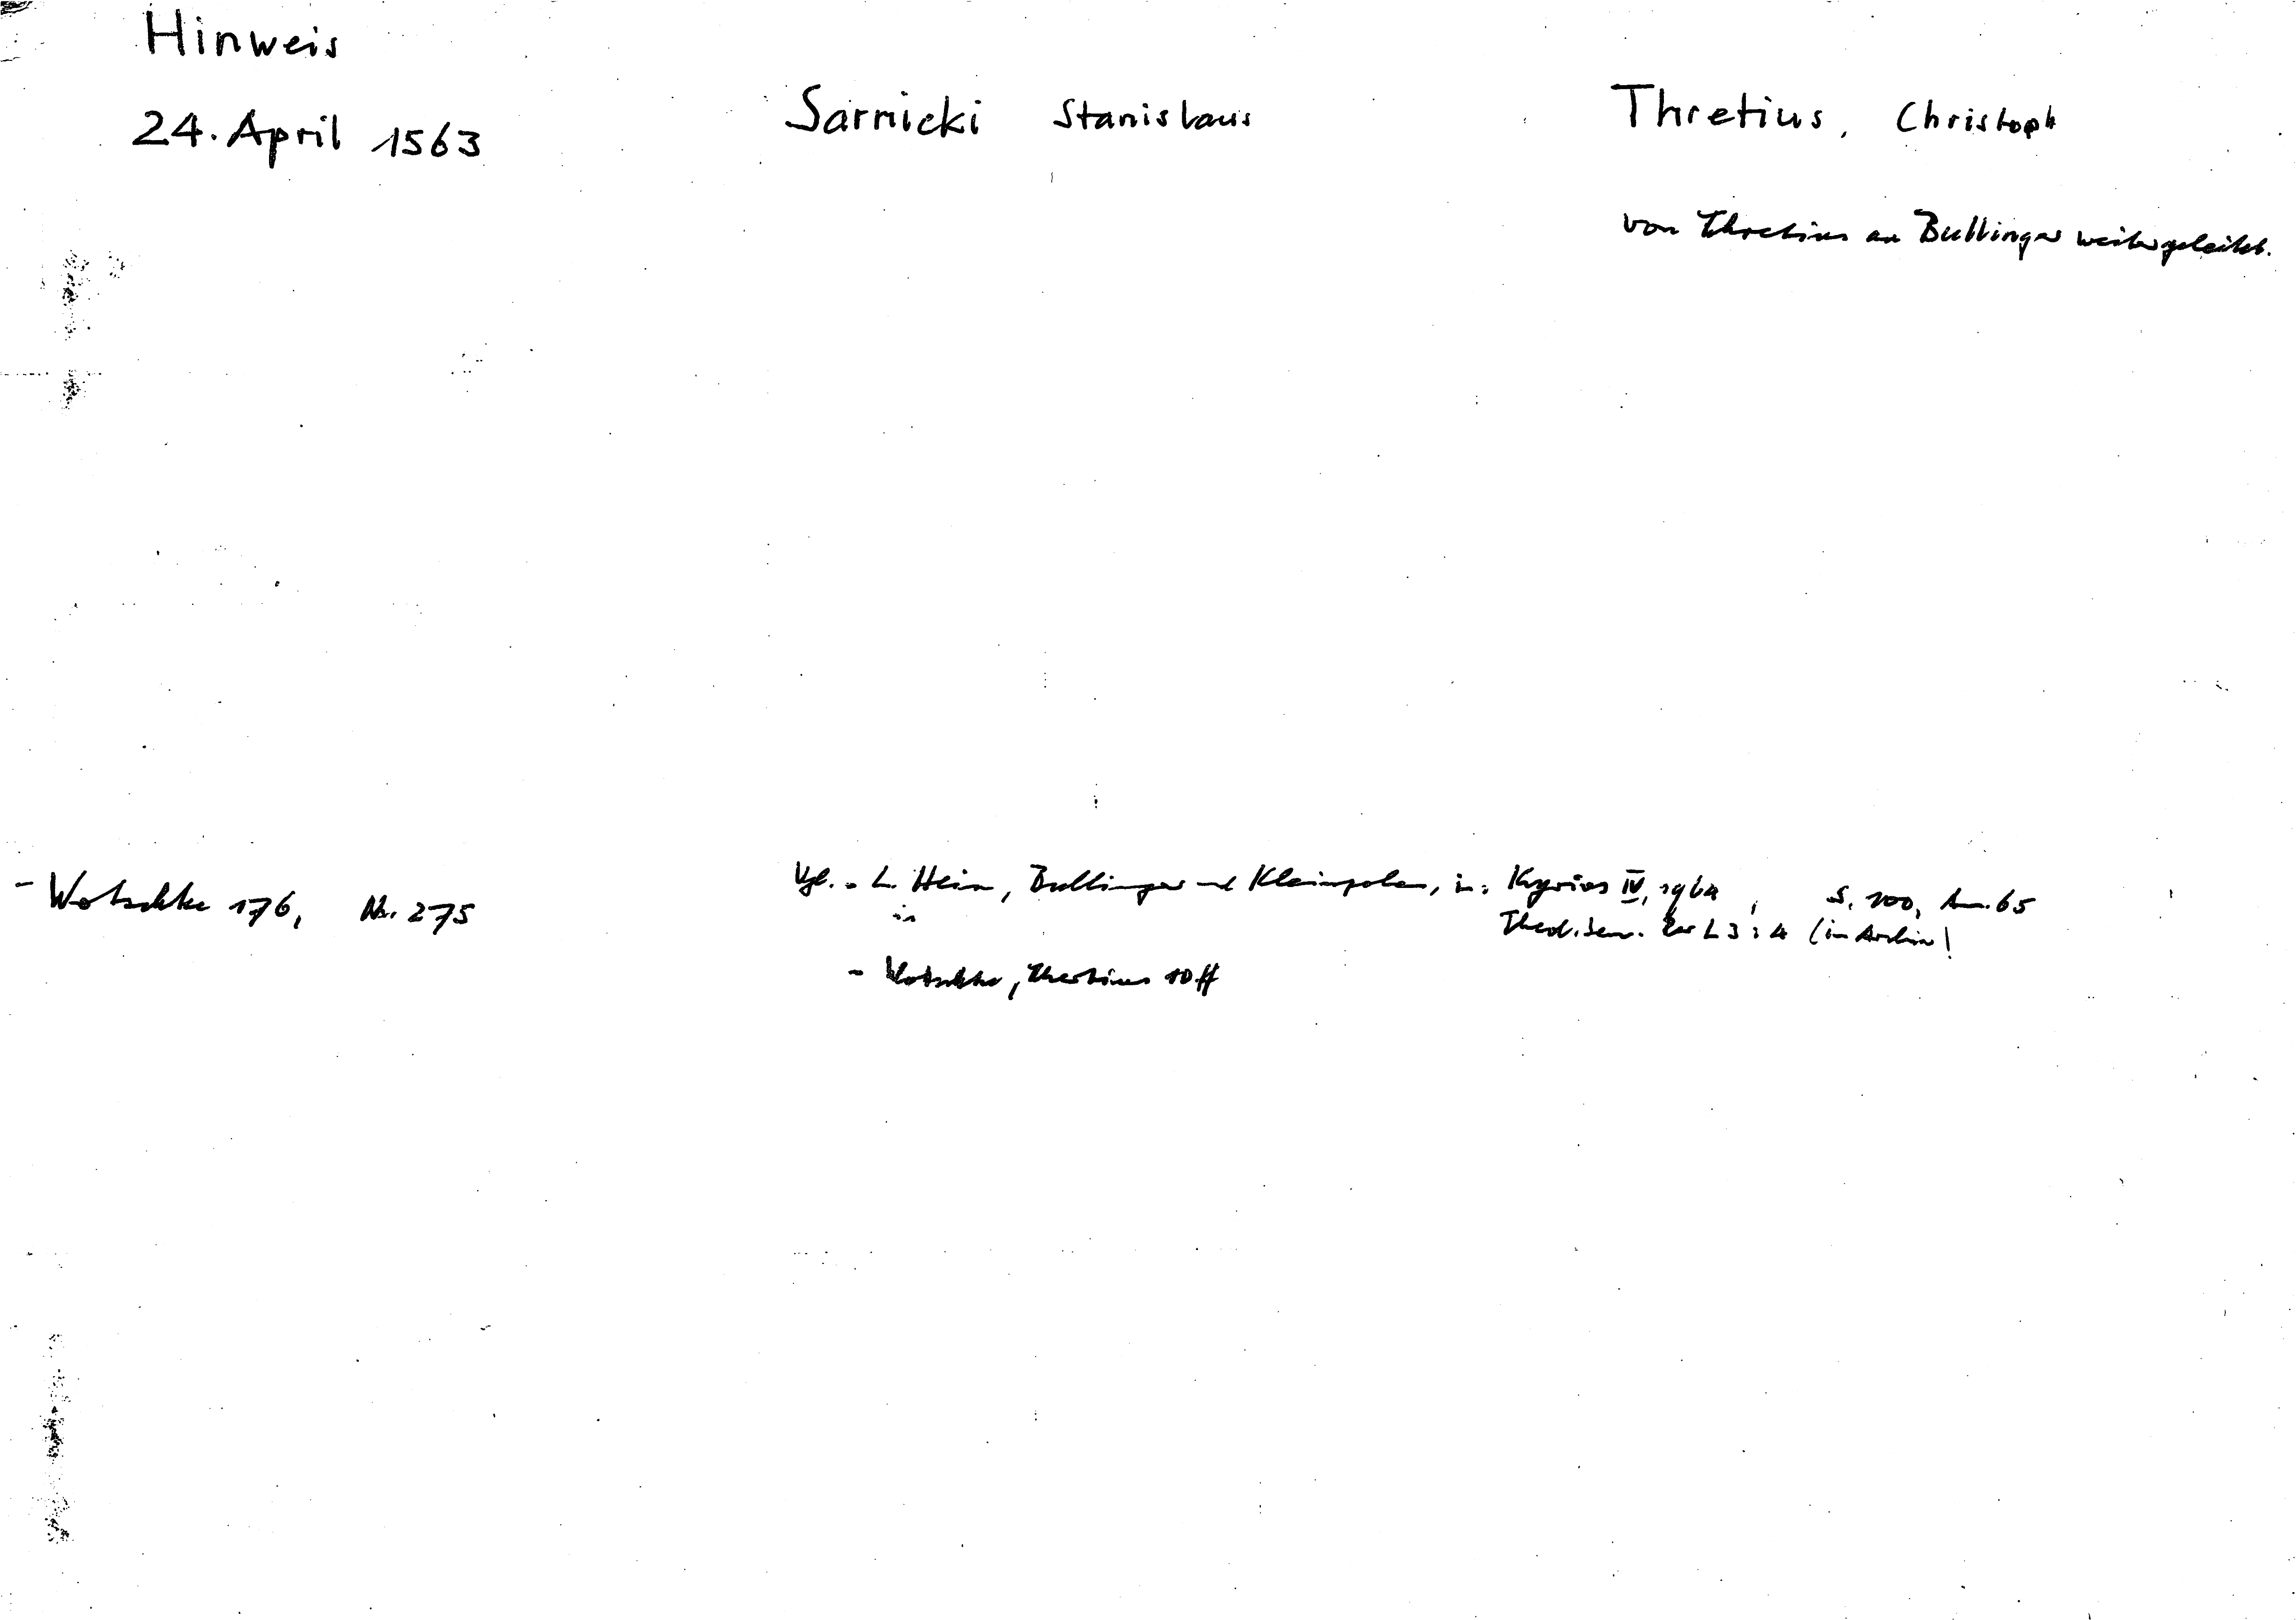 Hinweis
24. April 1563
Sarnicki Stanislaus
Thretius, Christoph
von Thretius an Bullinger weitergeleitet.
- Wotschke 176, Nr. 275
Vgl. - L. Hein, Bullinger und Kleinpolen, in: Kyrios IV, 1964, S. 100, Anm. 65
in
Theol. Sem. L 3 : 4 (im Archiv)
- Wotschke, Thretius 10 ff